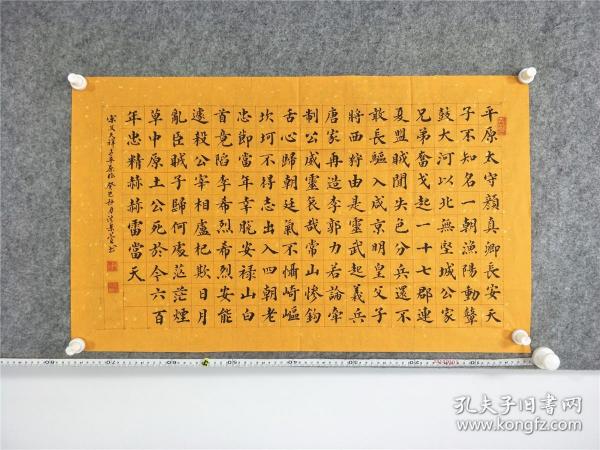 平原太守顏真卿長安天
子不知名一朝漁陽動鼙
鼓大河以北無堅城公家
兄弟奮戈起一十七郡連
夏盟賊聞失色分兵還不
敢長驅入咸京明皇父子
將西狩由是靈武起義兵
唐家再造李郭力若論牽
制公威靈哀哉常山慘鉤
舌心歸朝廷氣不懾崎嶇
坎坷不得志出入四朝老
忠節當年幸脫安祿山白
首竟陷李希烈希烈安能
遽殺公宰相盧杞欺日月
亂臣賊子歸何處茫茫煙
草中原土公死於今六百
年忠精赫赫雷當天
宋文天祥平原作癸巳
孔夫子旧书网
www.kongfz.com